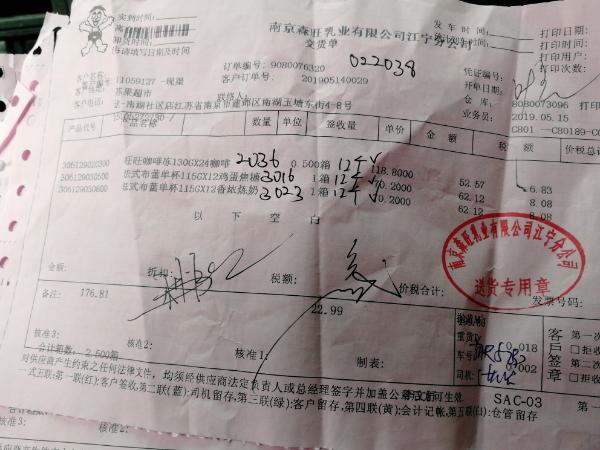 实到时间:
南京森旺乳业有限公司江宁分公司
交货单
请填写日期及时间
发车时间:
打印日期
打印时间
打印用户:
打印次数:
订单编号: 9080076320
022038
客户订单号: 201905140029
客户名称: 11059127 -现渠
苏果超市
联络人:
凭证编号:
开单日期:
仓 库:
业务员:
8080073096 打印
2019.05.15
CB01 --CB0189-C
产品代号
产品名称
数量
单位
签收量
单价
金额
税额
价税总计
30612902X300
旺旺咖啡冻130GX24咖啡 2036
0.500箱 12个√
118.8000
52.57
6.83
306129030600
法式布蕾单杯115GX12鸡蛋焦糖 3016
1箱 12个√
70.2000
62.12
8.08
306129030500
法式布蕾单杯115GX12香浓炼奶 3023
1箱 12个√
70.2000
62.12
8.08
以下空白
南京森旺乳业有限公司江宁分公司
送货专用章
金额:
折扣:
税额:
价税合计:
发票号码:
备注: 176.81
22.99
核准3:
核准2:
核准1:
制表:
车号:
司机:
0.018
客户签章
第一次
拒收
第二
拒收
合计箱数: 2.500箱
对供应商产生约束之任何法律文件,均须经供应商法定负责人或总经理签字并加盖公章后方可生效
一式五联:第一联(红):客户签收,第二联(蓝):司机留存,第三联(绿):客户留存,第四联(黄):会计记帐,第五联(白):仓管留存
SAC-03
核准3:
核准2: